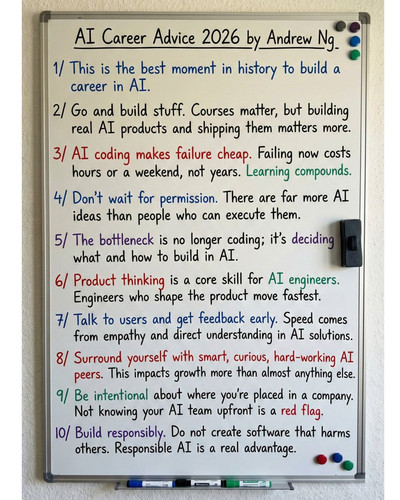 AI Career Advice 2026 by Andrew Ng
1/ This is the best moment in history to build a
career in AI.
2/ Go and build stuff. Courses matter, but building
real AI products and shipping them matters more.
3/ AI coding makes failure cheap. Failing now costs
hours or a weekend, not years. Learning compounds.
4/ Don't wait for permission. There are far more AI
ideas than people who can execute them.
5/ The bottleneck is no longer coding; it's deciding
what and how to build in AI.
6/ Product thinking is a core skill for AI engineers.
Engineers who shape the product move fastest.
7/ Talk to users and get feedback early. Speed comes
from empathy and direct understanding in AI solutions.
8/ Surround yourself with smart, curious, hard-working AI
peers. This impacts growth more than almost anything else.
9/ Be intentional about where you're placed in a company.
Not knowing your AI team upfront is a red flag.
10/ Build responsibly. Do not create software that harms
others. Responsible AI is a real advantage.